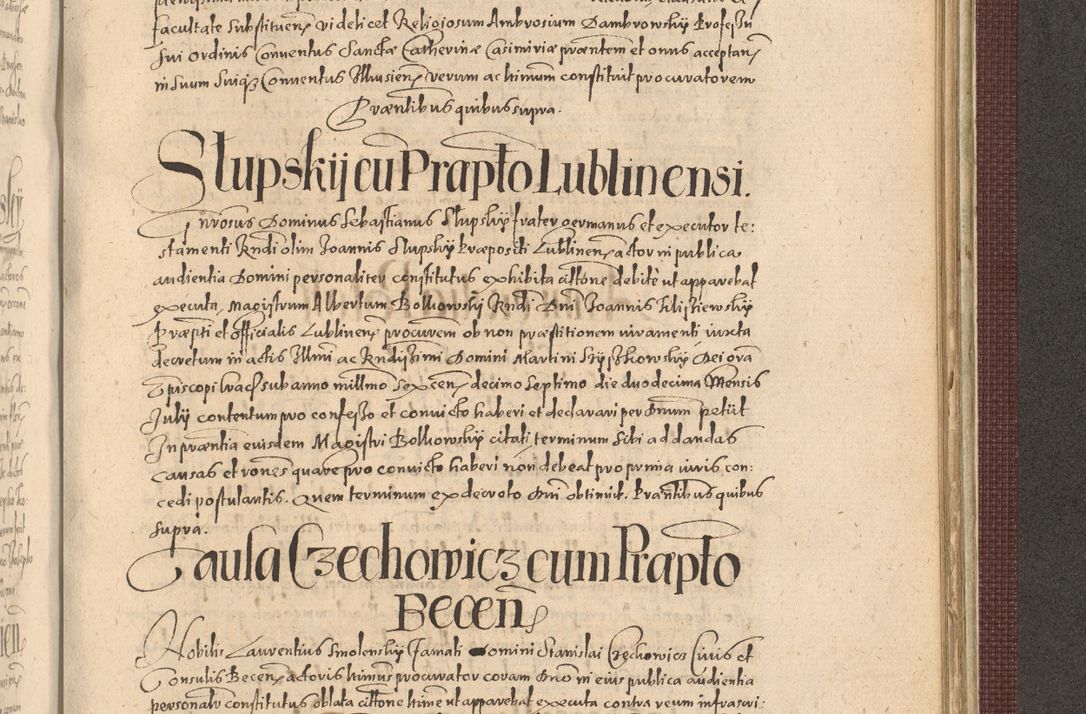 facultate substituen videlicet Religiosum Ambrosium Dambrowskij Professu
sui ordinis Conventus Sanctæ Catherinæ Casimiriæ præntem et onus acceptan
in suum suiq Conventus Illuisien verum ac ltimum constituit procuratorem
Præntibus quibus supra.
Slupskij cū Præpto Lublinensi.
Gnrosus Dominus Sebastianus Slupskij frater germanus et executor te:
stamenti Rndi olim Joannis Slupskij Præpositi Lublinen actor in publica
audientia Domini personaliter constitutus exhibita cittōne debite ut apparebat
executa, Magistrum Albertum Bolkowskij Rndi Dni Joannis
Præpti et officialis Lublinen procurem ob non præstitionem iuramenti iuxta
decretum in actis Illmi ac Rndissimi Domini Martini Szyszkowskij Dei gra
Episcopi Crac sub anno millmo Sexcen decimo septimo die duodecima Mensis
Julij contentum pro confesso et convicto haberi et declarari per Dnum petiit
In præntia eiusdem Magistri Bolkowskij citati terminum sibi ad dandas
causas et rōnes quare pro convicto haberi non debeat pro prima iuris con:
cedi postulantis. Quem terminum ex decreto Dni obtinuit. Præntibus quibus
supra.
Causa Czechowicz cum Præpto
Becen
Nobilis Laurentius Smolenskij famati Domini Stanislai Czechowicz Civis et
Consulis Becen actoris ltimus procurator coram Dno in eius publica audientia
personalr constitutus oblata cittōne ltime ut apparebat executa contra reum infrascri: